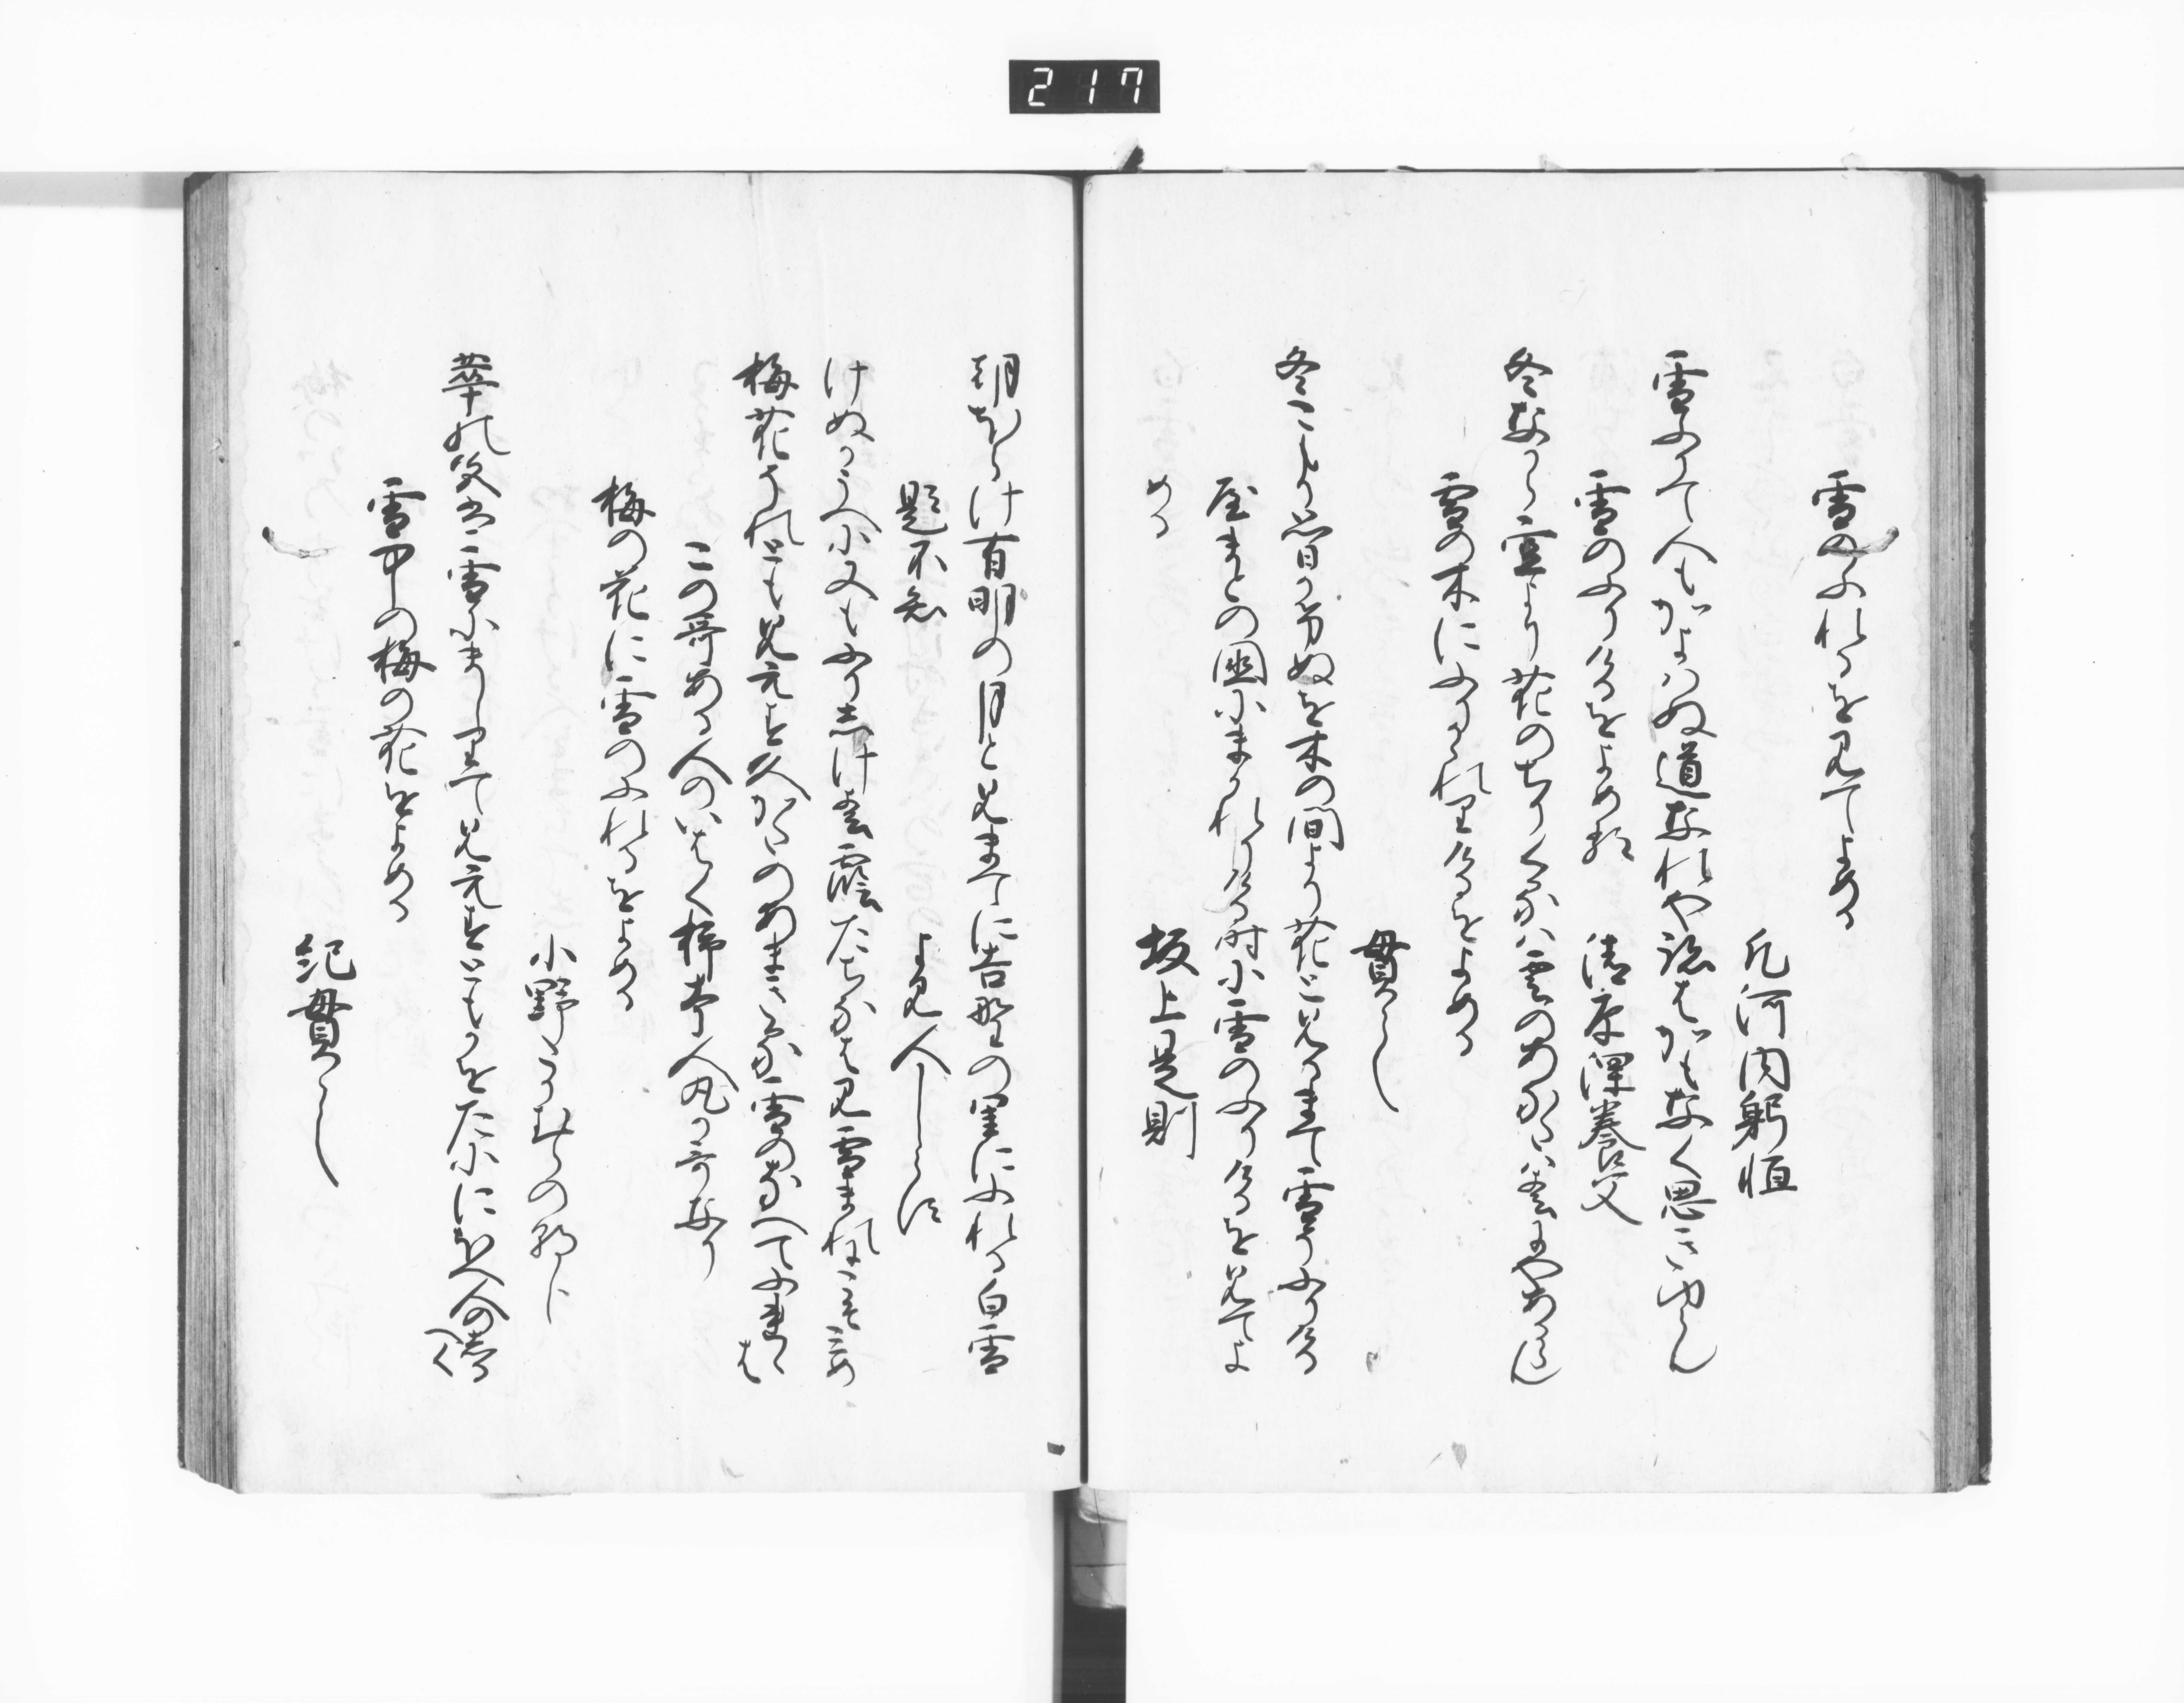 217
雪のふれるを見てよめる
凡河内躬恒
雪ふりて人もかよはぬ道なれや跡はかもなく思きゆらん
雪のふりけるをよめる
清原深養父
冬なから空より花のちりくるは雲のあなたは春にやあるらん
雪の木にふりかゝれりけるをよめる
貫之
冬こもり思かけぬを木の間より花と見るまて雪そふりける
やまとの国にまかれりける時に雪のふりけるを見てよ
める
坂上是則
朝ほらけ有明の月と見まてに吉野の里にふれる白雪
題不知
よみ人しらす
けぬかうへに又もふりしけ春霞たちなはみ雪まれにこそみめ
梅花それとも見えす久かたのあまきる雪のなへてふれゝは
この哥ある人のいはく柿本人丸か哥なり
梅の花に雪のふれるをよめる
小野たかむらの朝臣
花の色は雪にましりて見えすともかをたににほへ人の知へく
雪中の梅の花をよめる
紀貫之